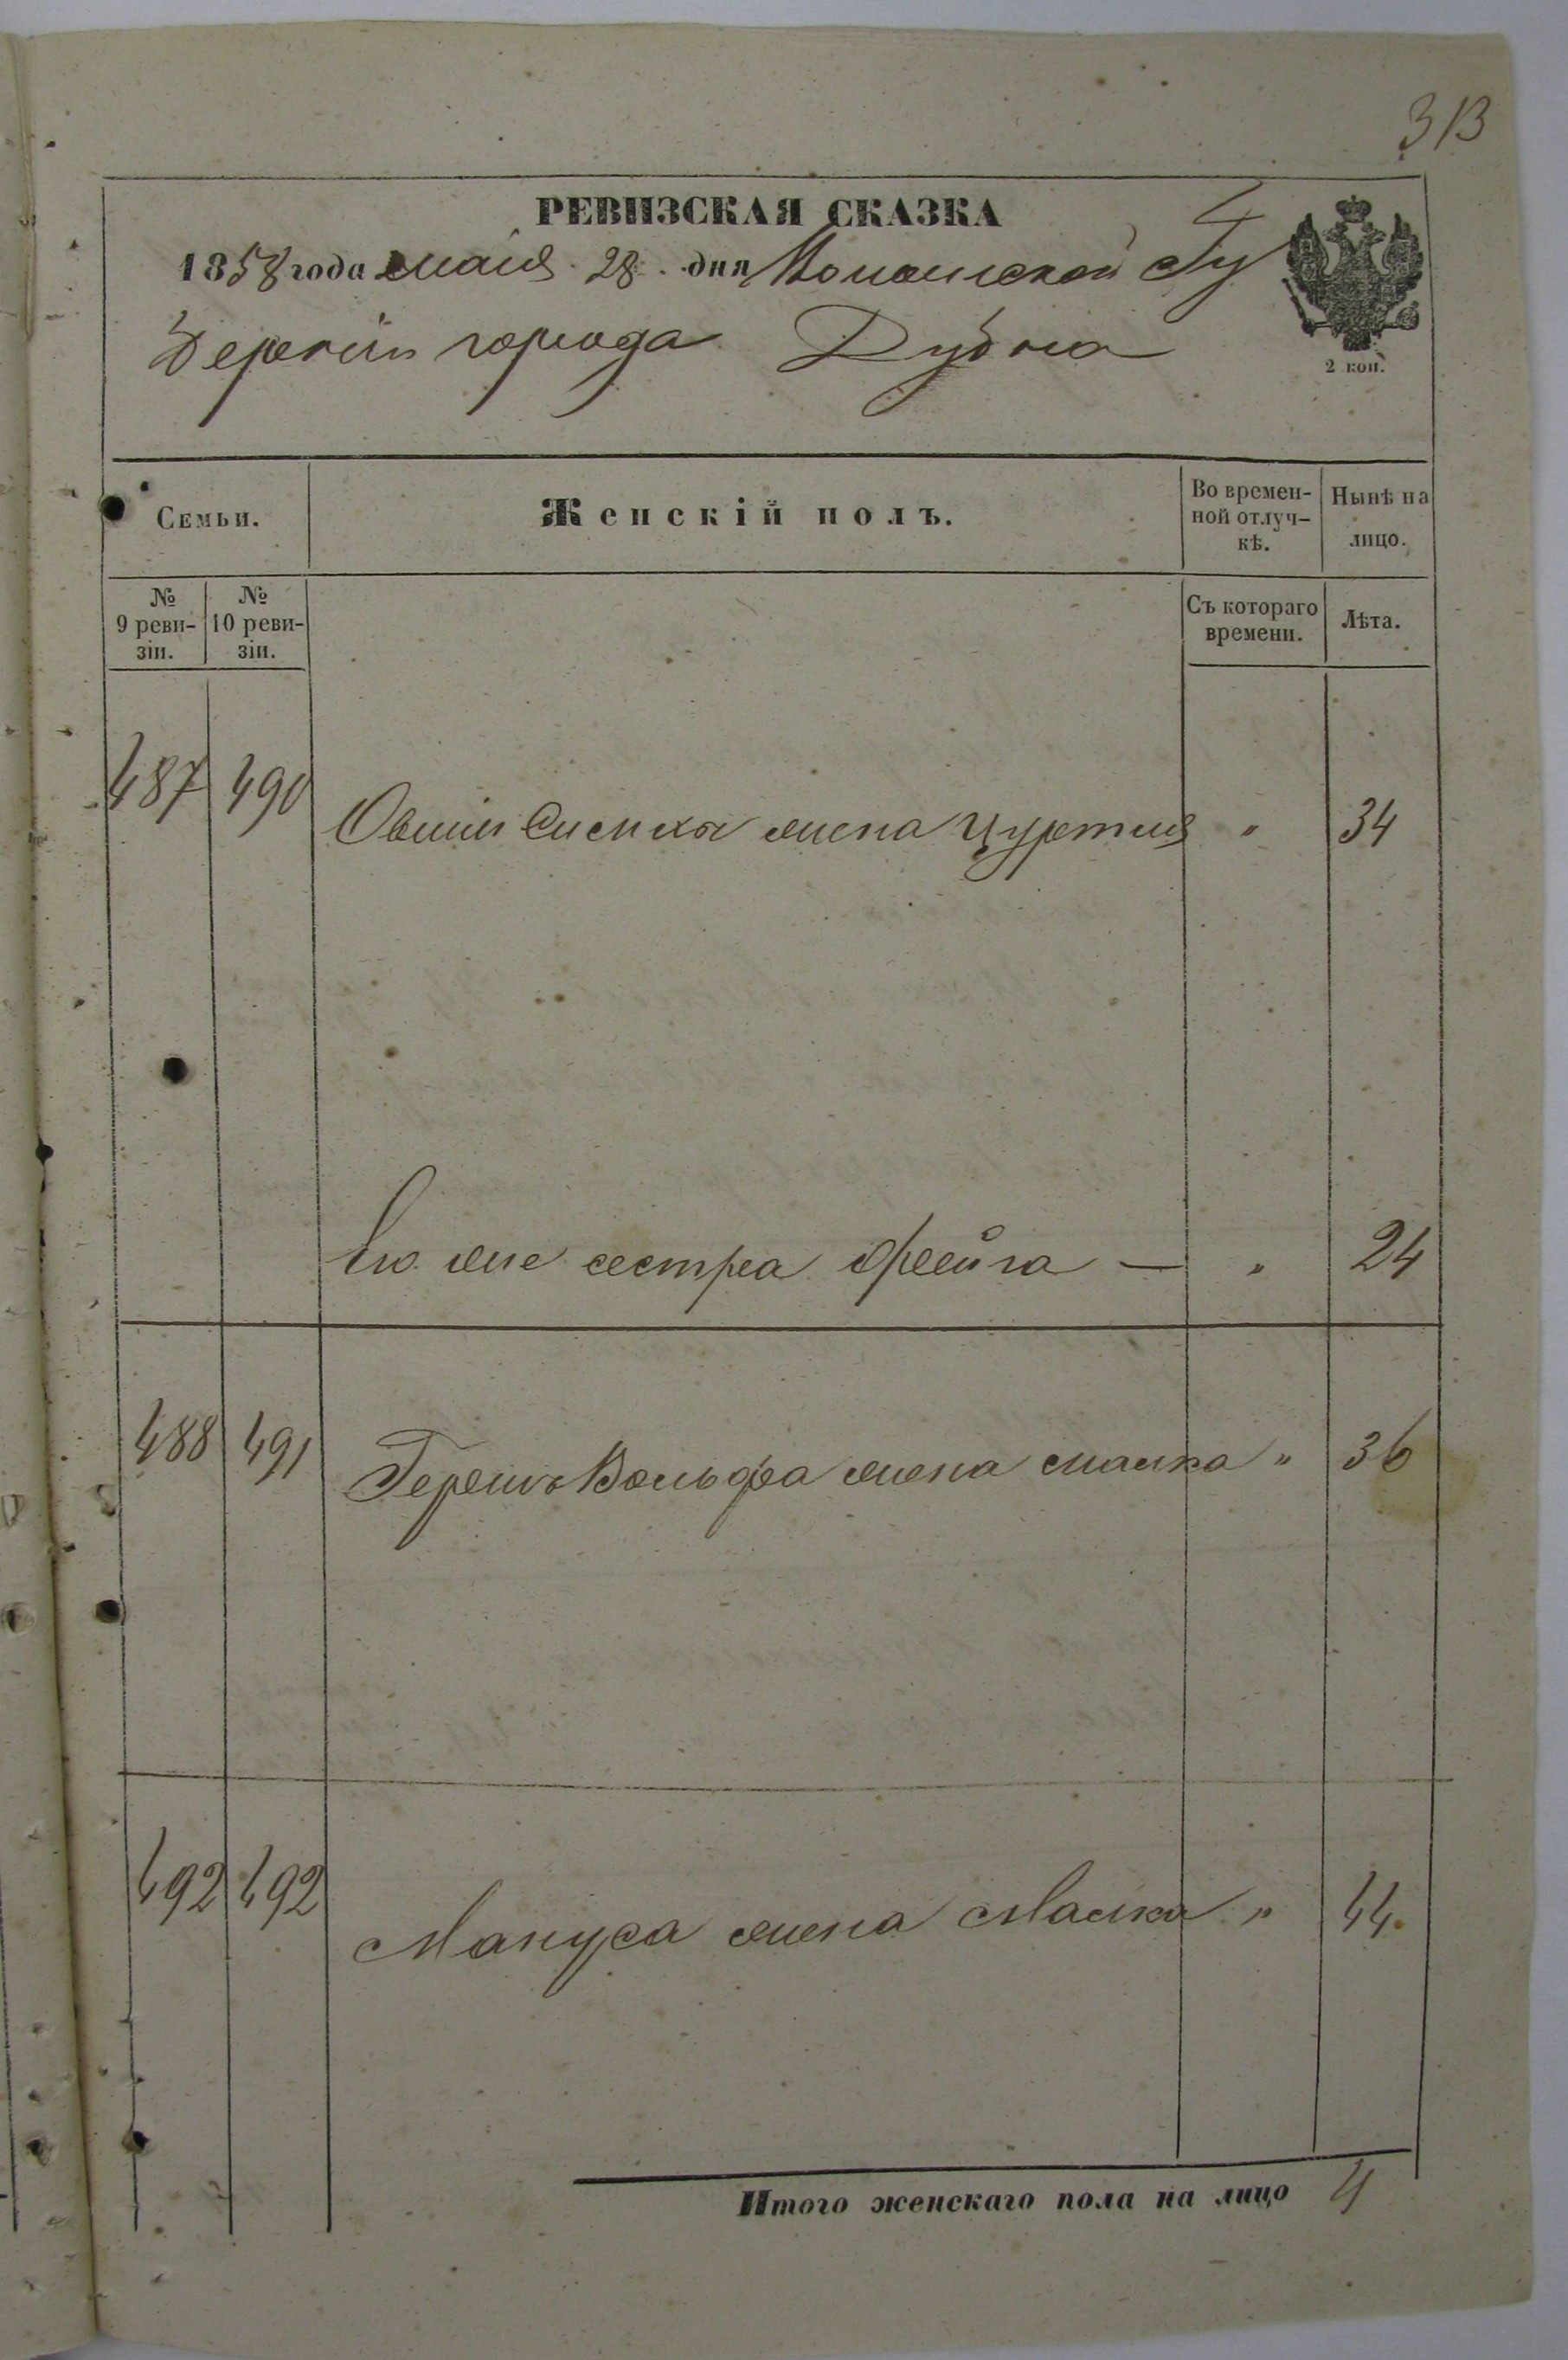 313
РЕВИЗСКАЯ СКАЗКА
1858 года маія 28 дня Волынской Гу
берніи города Дубна
2 коп.
Семьи.
Женскій полъ.
Во времен-
ной отлуч-
кѣ.
Нынѣ на
лицо.
№
9 реви-
зіи.
№
10 реви-
зіи.
Съ котораго
времени.
Лѣта.
487 490 жена " 34
Его же сестра Фейга — " 24
488 491 Гершъ Вольфа жена Малка " 36
492 492 Мануса жена Малка " 44
Итого женскаго пола на лицо 4